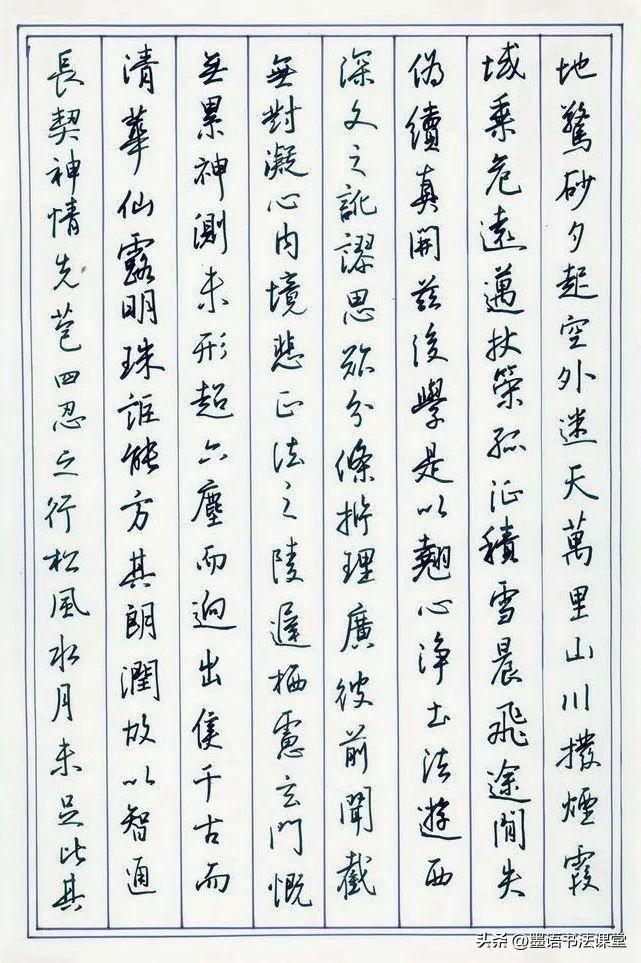 長契神情先苞四忍之行松風水月未足比其
清華仙露明珠詎能方其朗潤故以智通
無累神測未形超六塵而迥出隻千古而
無對凝心內境悲正法之陵遲栖慮玄門慨
深文之訛謬思欲分條析理廣彼前聞截
偽續真開茲後學是以翹心淨土法遊西
域乘危遠邁杖策孤征積雪晨飛途間失
地驚砂夕起空外迷天萬里山川撥煙霞
头条 @墨语书法课堂